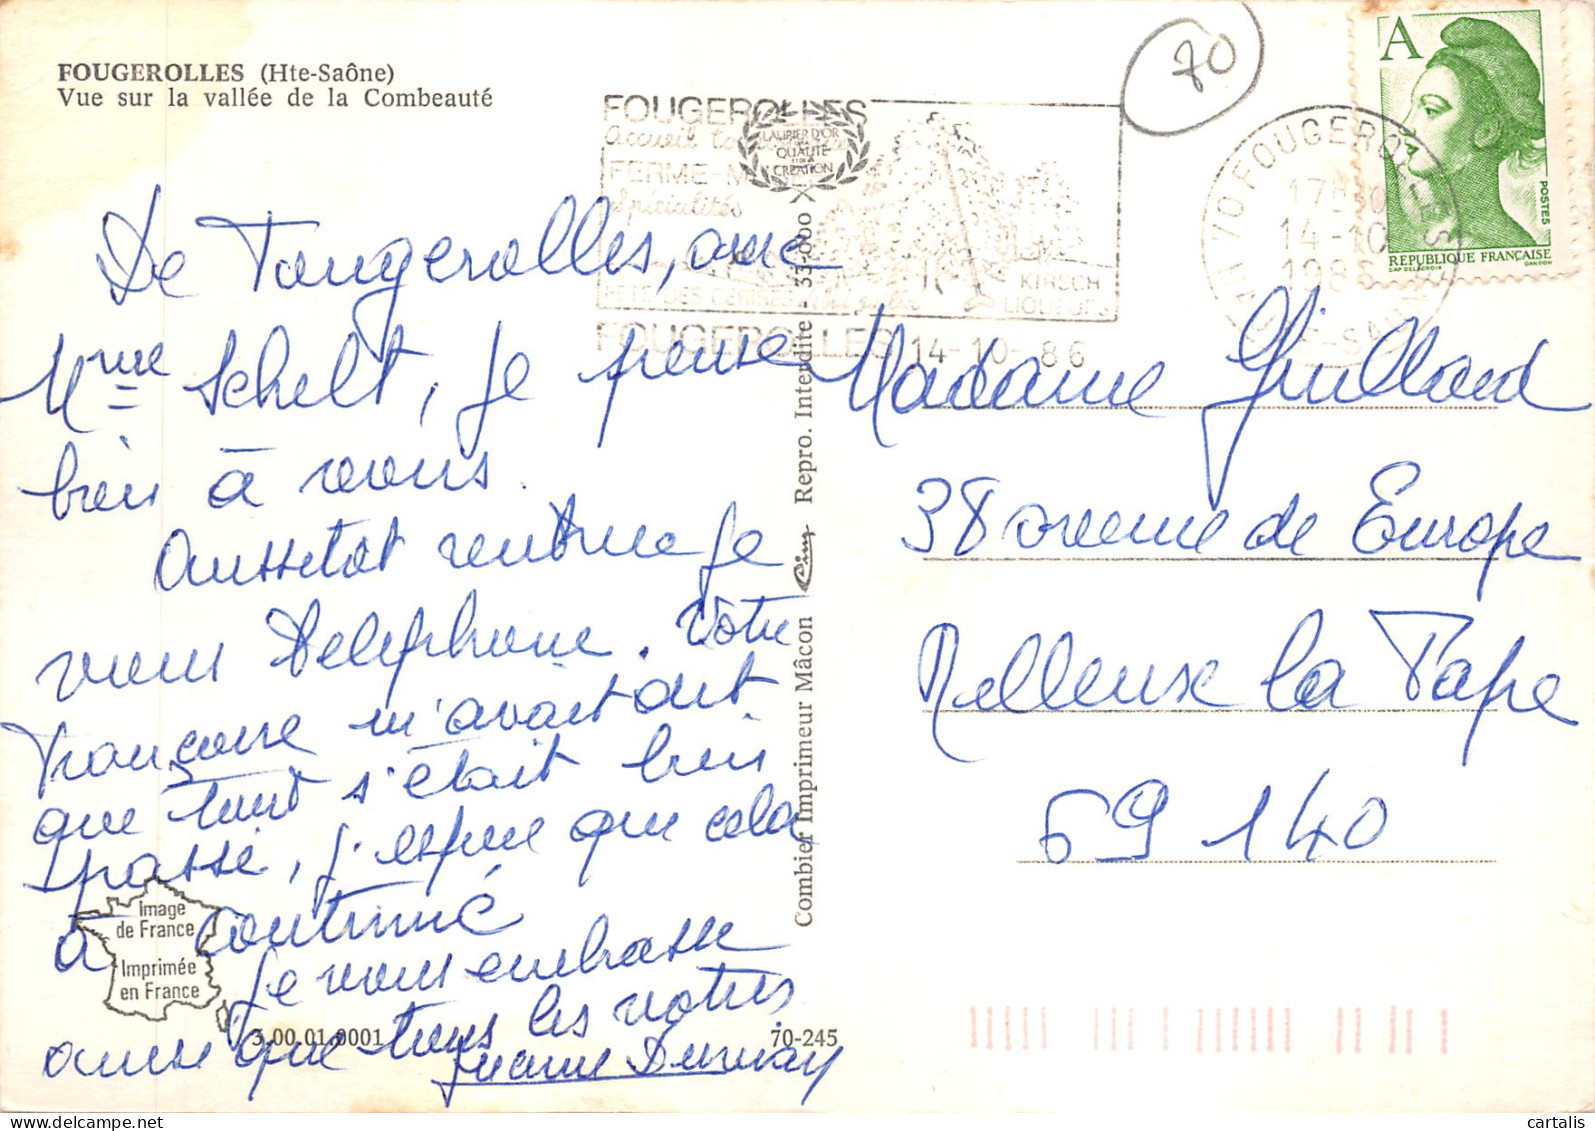 FOUGEROLLES (Hte-Saône)
Vue sur la vallée de la Combeauté
70
FOUGEROLLES
accueil
LAURIER D'OR
QUALITE
CREATION
FERME-
spécialités
KIRSCH
LIQUEURS
FETE DES CERISES
FOUGEROLLES 14-10-86
70 FOUGEROLLES
17H30
14-10
1986
HAUTE-SAONE
A
POSTES
REPUBLIQUE FRANÇAISE
DAP DELACROIX
GANDON
De Fougerolles, avec
Mme Schelt, je pense
bien à vous.
Aussitôt rentrée je
vous téléphone. Votre
Françoise m'avait dit
que tout s'était bien
passé, j'espère que cela
a continué
Je vous embrasse
ainsi que tous les vôtres
Madame Guilland
38 avenue de Europe
Rilleux la Pape
69 140
Combier Imprimeur Mâcon Cim Repro. Interdite - 33-800 X
Image
de France
Imprimée
en France
3.00.01.0001
70-245
cartalis